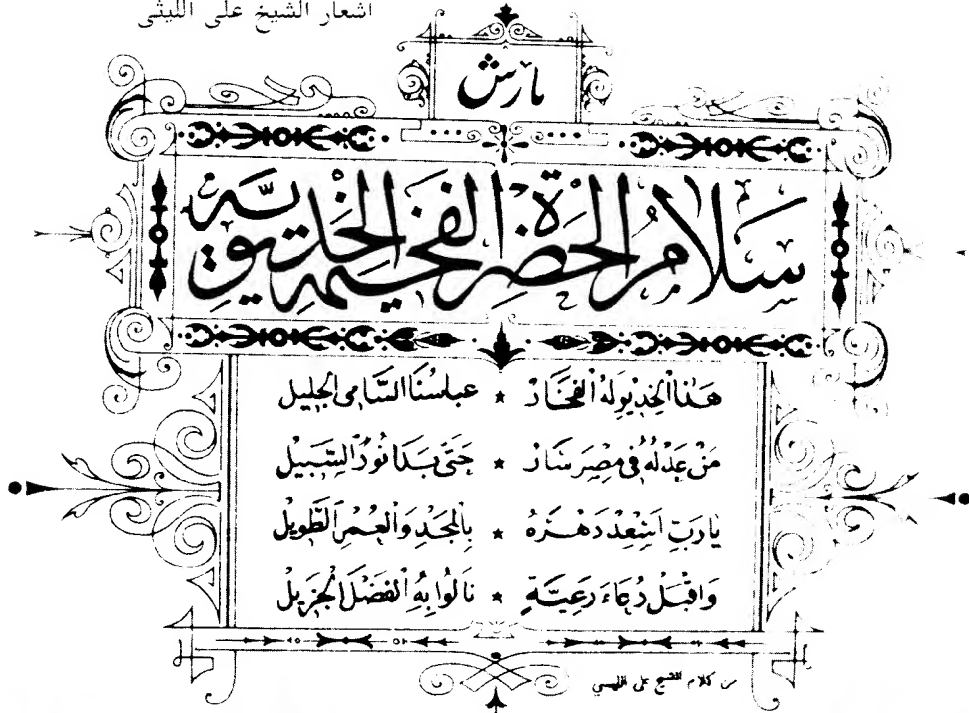 اشعار الشيخ على الليثى
مارش
سَلَامُ الحَضْرَة الفَخيمَه الخديويَّه
هَذَا الْخِدِيو لَهُ الْفَخَارْ * عباسُنَا السَّامِى الْجَلِيل
مَنْ عَدْلُهُ فِى مِصْرَ سَارْ * حَتَّى بَدَا نُورُ السَّبِيلْ
يَا رَبِّ اَسْعِدْ دَهْرَهُ * بِالْمَجْدِ وَالْعُمْرِ الطَّوِيلْ
وَاقْبَلْ دُعَاءَ رَعِيَّةٍ * نَالُوا بِهِ الْفَضْلَ الْجَزِيلْ
من كلام الشيخ على الليسى